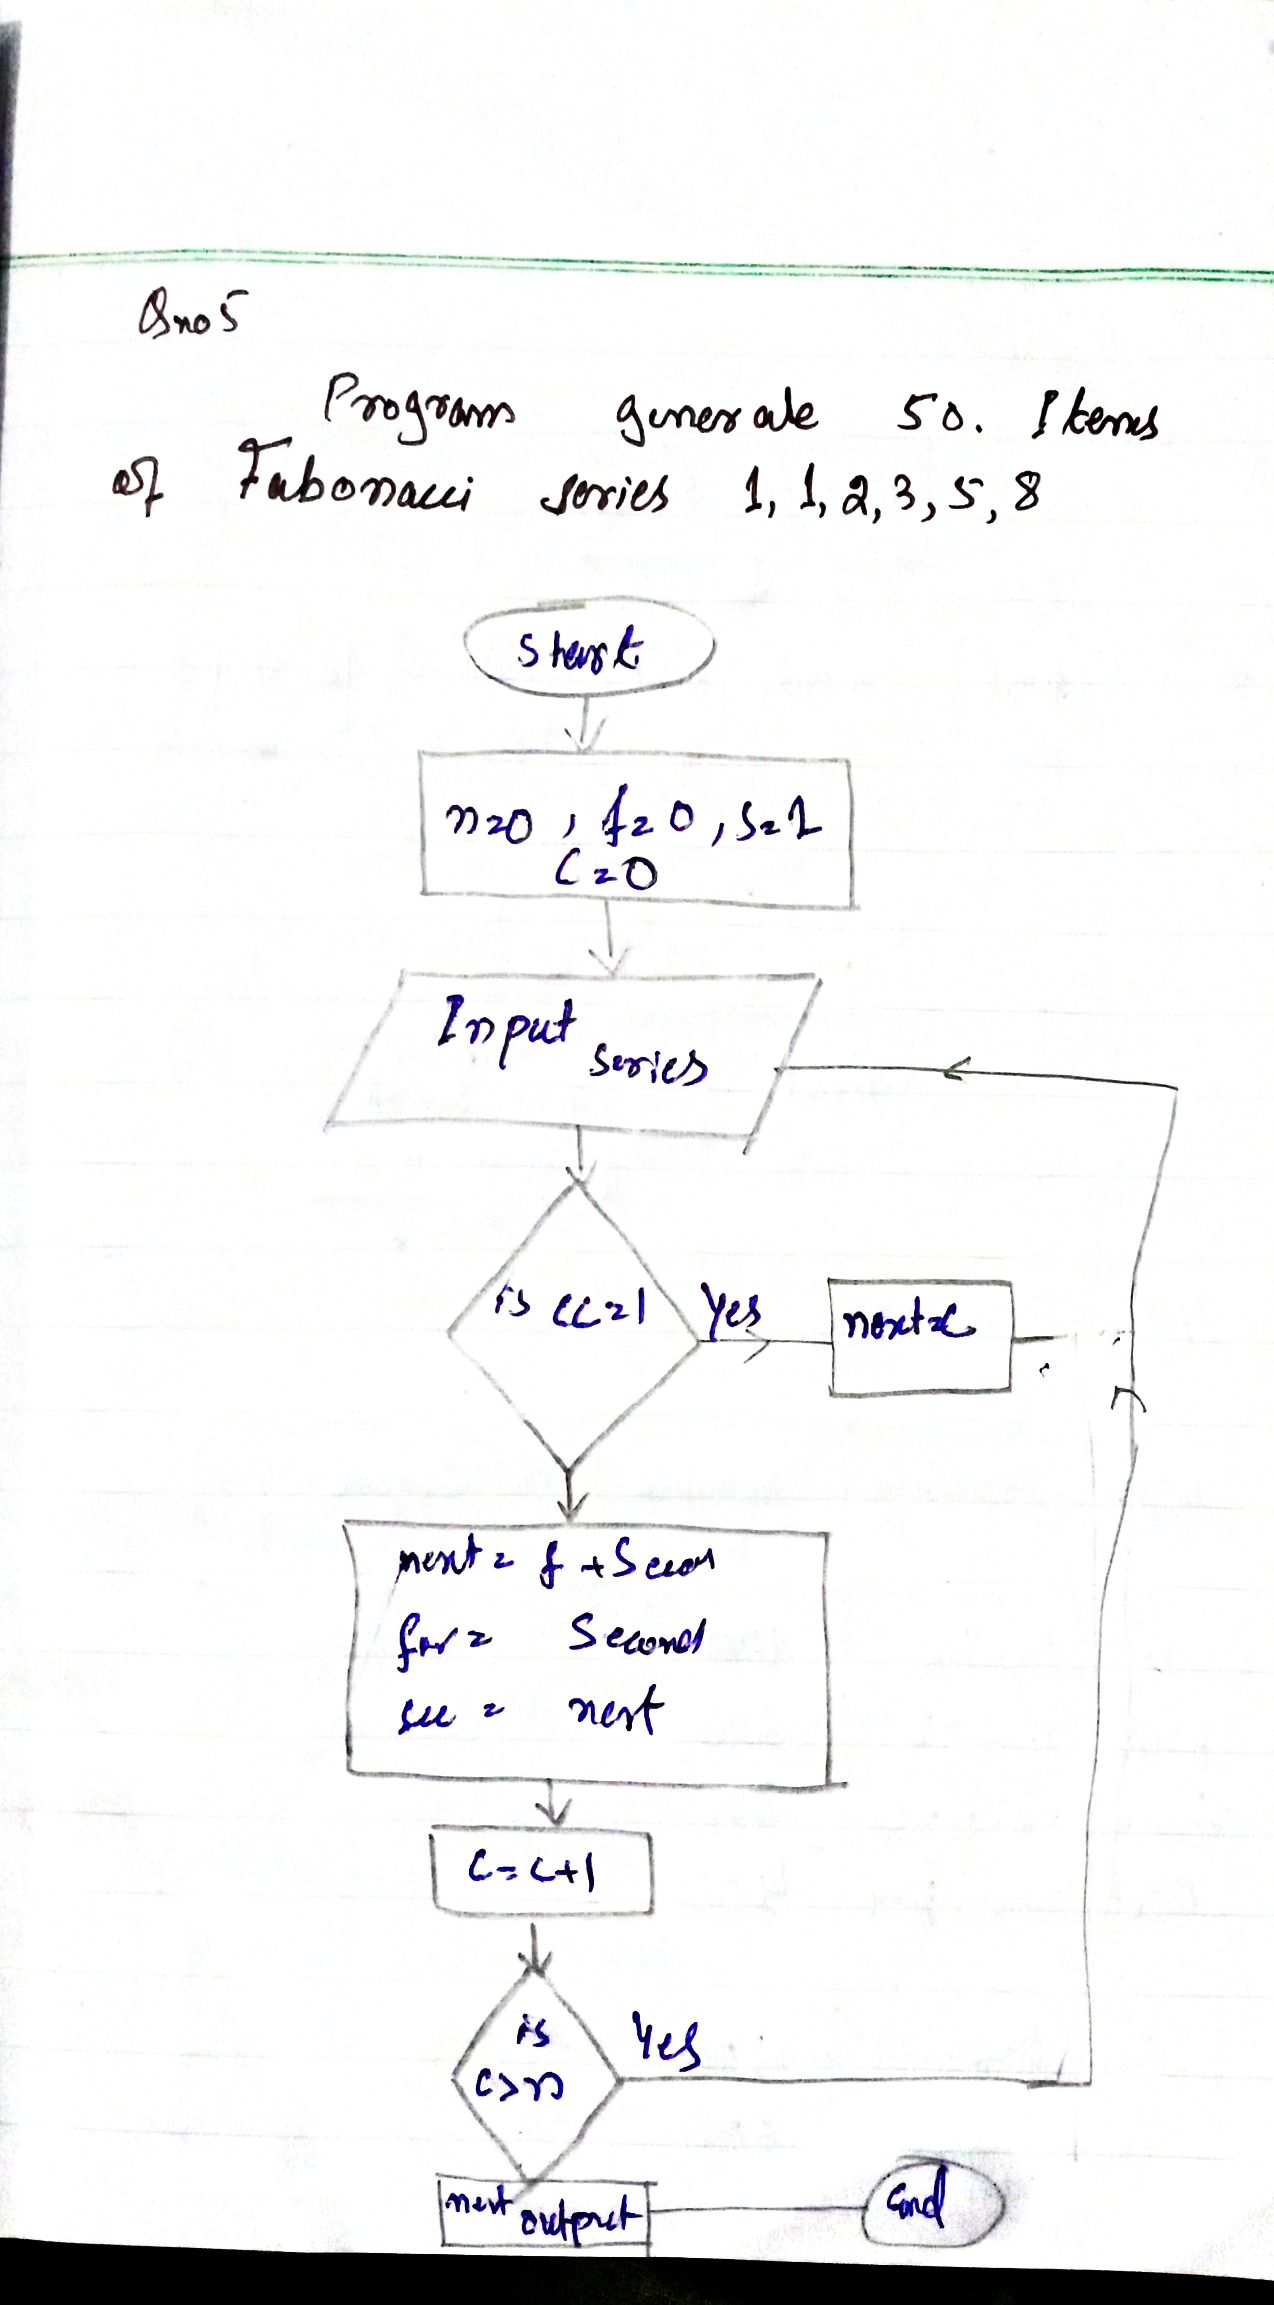 Qno 5
Program generate 50. Items
of Fabonacci series 1, 1, 2, 3, 5, 8
Start
n=0 , f=0 , s=1
C=0
Input series
is c<=1
Yes
next=c
next = f + Secon
for = Second
sec = next
C=C+1
is
c>n
Yes
next output
End